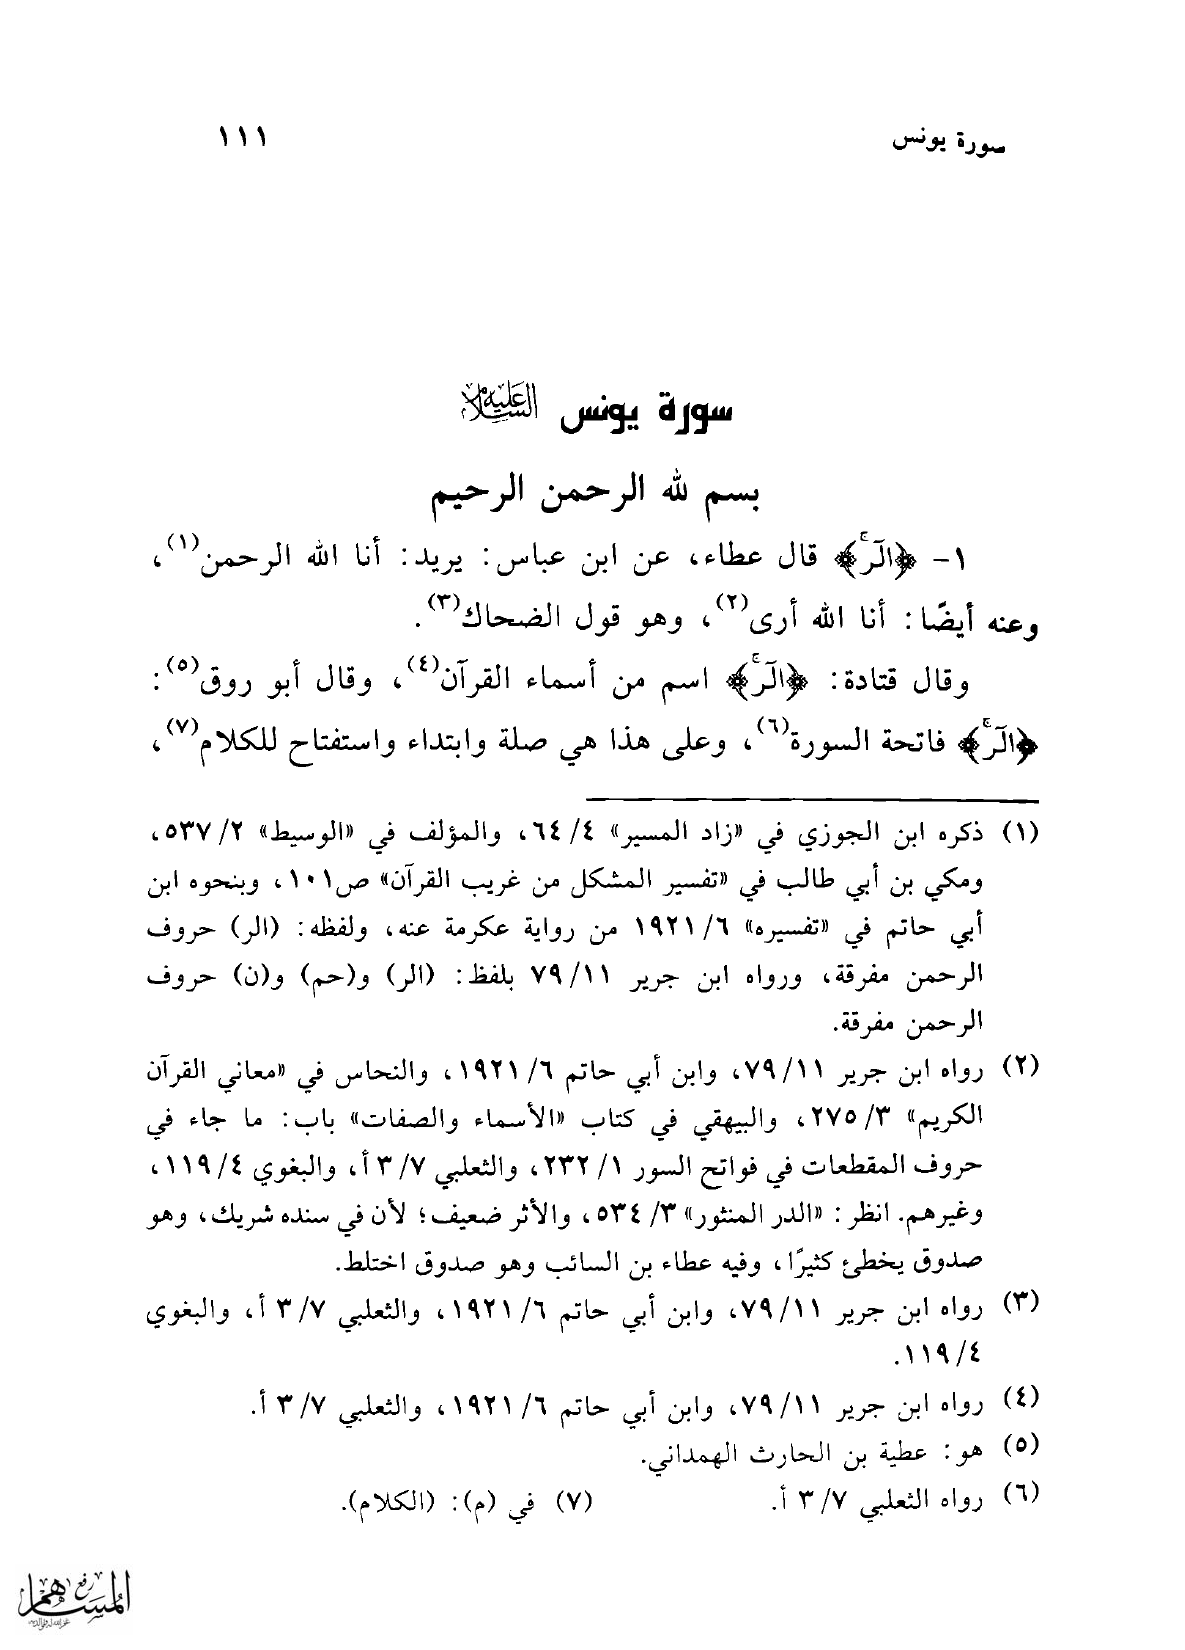 سورة يونس ١١١
سورة يونس عليه السلام
بسم لله الرحمن الرحيم
١- ﴿الٓرۚ﴾ قال عطاء، عن ابن عباس: يريد: أنا الله الرحمن(١)،
وعنه أيضًا: أنا الله أرى(٢)، وهو قول الضحاك(٣).
وقال قتادة: ﴿الٓرۚ﴾ اسم من أسماء القرآن(٤)، وقال أبو روق(٥):
﴿الٓرۚ﴾ فاتحة السورة(٦)، وعلى هذا هي صلة وابتداء واستفتاح للكلام(٧)،
(١) ذكره ابن الجوزي في «زاد المسير» ٤/ ٦٤، والمؤلف في «الوسيط» ٢/ ٥٣٧،
ومكي بن أبي طالب في «تفسير المشكل من غريب القرآن» ص١٠١، وبنحوه ابن
أبي حاتم في «تفسيره» ٦/ ١٩٢١ من رواية عكرمة عنه، ولفظه: (الر) حروف
الرحمن مفرقة، ورواه ابن جرير ١١/ ٧٩ بلفظ: (الر) و(حم) و(ن) حروف
الرحمن مفرقة.
(٢) رواه ابن جرير ١١/ ٧٩، وابن أبي حاتم ٦/ ١٩٢١، والنحاس في «معاني القرآن
الكريم» ٣/ ٢٧٥، والبيهقي في كتاب «الأسماء والصفات» باب: ما جاء في
حروف المقطعات في فواتح السور ١/ ٢٣٢، والثعلبي ٧/ ٣ أ، والبغوي ٤/ ١١٩،
وغيرهم. انظر: «الدر المنثور» ٣/ ٥٣٤، والأثر ضعيف؛ لأن في سنده شريك، وهو
صدوق يخطئ كثيرًا، وفيه عطاء بن السائب وهو صدوق اختلط.
(٣) رواه ابن جرير ١١/ ٧٩، وابن أبي حاتم ٦/ ١٩٢١، والثعلبي ٧/ ٣ أ، والبغوي
٤/ ١١٩.
(٤) رواه ابن جرير ١١/ ٧٩، وابن أبي حاتم ٦/ ١٩٢١، والثعلبي ٧/ ٣ أ.
(٥) هو: عطية بن الحارث الهمداني.
(٦) رواه الثعلبي ٧/ ٣ أ. (٧) في (م): (الكلام).
رفع
المساهم